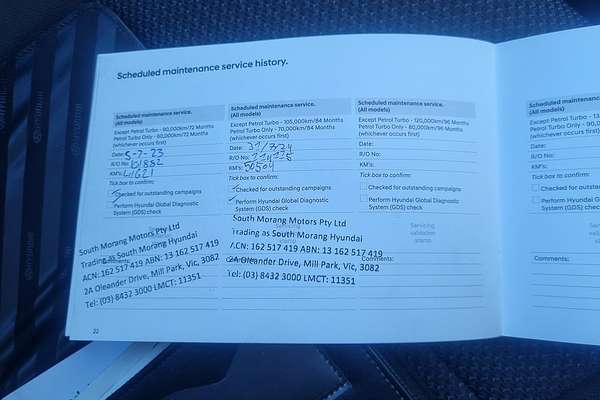 Scheduled maintenance service history.
Scheduled maintenance service.
(All models)
Except Petrol Turbo - 90,000km/72 Months
Petrol Turbo Only - 60,000km/72 Months
(whichever occurs first)
Date: 5-7-23
R/O No:
KM's: 41621
Tick box to confirm:
Checked for outstanding campaigns
Perform Hyundai Global Diagnostic
System (GDS) check
South Morang Motors Pty Ltd
Trading as South Morang Hyundai
ACN: 162 517 419 ABN: 13 162 517 419
2A Oleander Drive, Mill Park, Vic, 3082
Tel: (03) 8432 3000 LMCT: 11351
22
Scheduled maintenance service.
(All models)
Except Petrol Turbo - 105,000km/84 Months
Petrol Turbo Only - 70,000km/84 Months
(whichever occurs first)
Date:
R/O No:
KM's: 50504
Tick box to confirm:
Checked for outstanding campaigns
Perform Hyundai Global Diagnostic
System (GDS) check
South Morang Motors Pty Ltd
Trading as South Morang Hyundai
ACN: 162 517 419 ABN: 13 162 517 419
2A Oleander Drive, Mill Park, Vic, 3082
Tel: (03) 8432 3000 LMCT: 11351
Scheduled maintenance service.
(All models)
Except Petrol Turbo - 120,000km/96 Months
Petrol Turbo Only - 80,000km/96 Months
(whichever occurs first)
Date:
R/O No:
KM's:
Tick box to confirm:
Checked for outstanding campaigns
Perform Hyundai Global Diagnostic
System (GDS) check
Servicing
validation
stamp
Comments:
Scheduled maintenance
(All models)
Except Petrol Turbo - 13
Petrol Turbo Only - 90,0
(whichever occurs first)
Date:
R/O No:
KM's:
Tick box to confirm:
Checked for outstan
Perform Hyundai Glo
System (GDS) check
Comments: